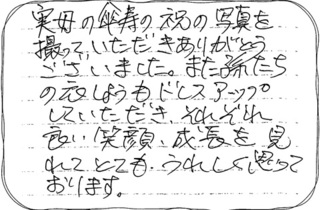 実母の傘寿の祝の写真を
撮って、いただきありがとう
ございました。また孫たち
の衣しょうもドレスアップ
していただき、それぞれ
良い笑顔、成長を見
れてとても、うれしく思って
おります。